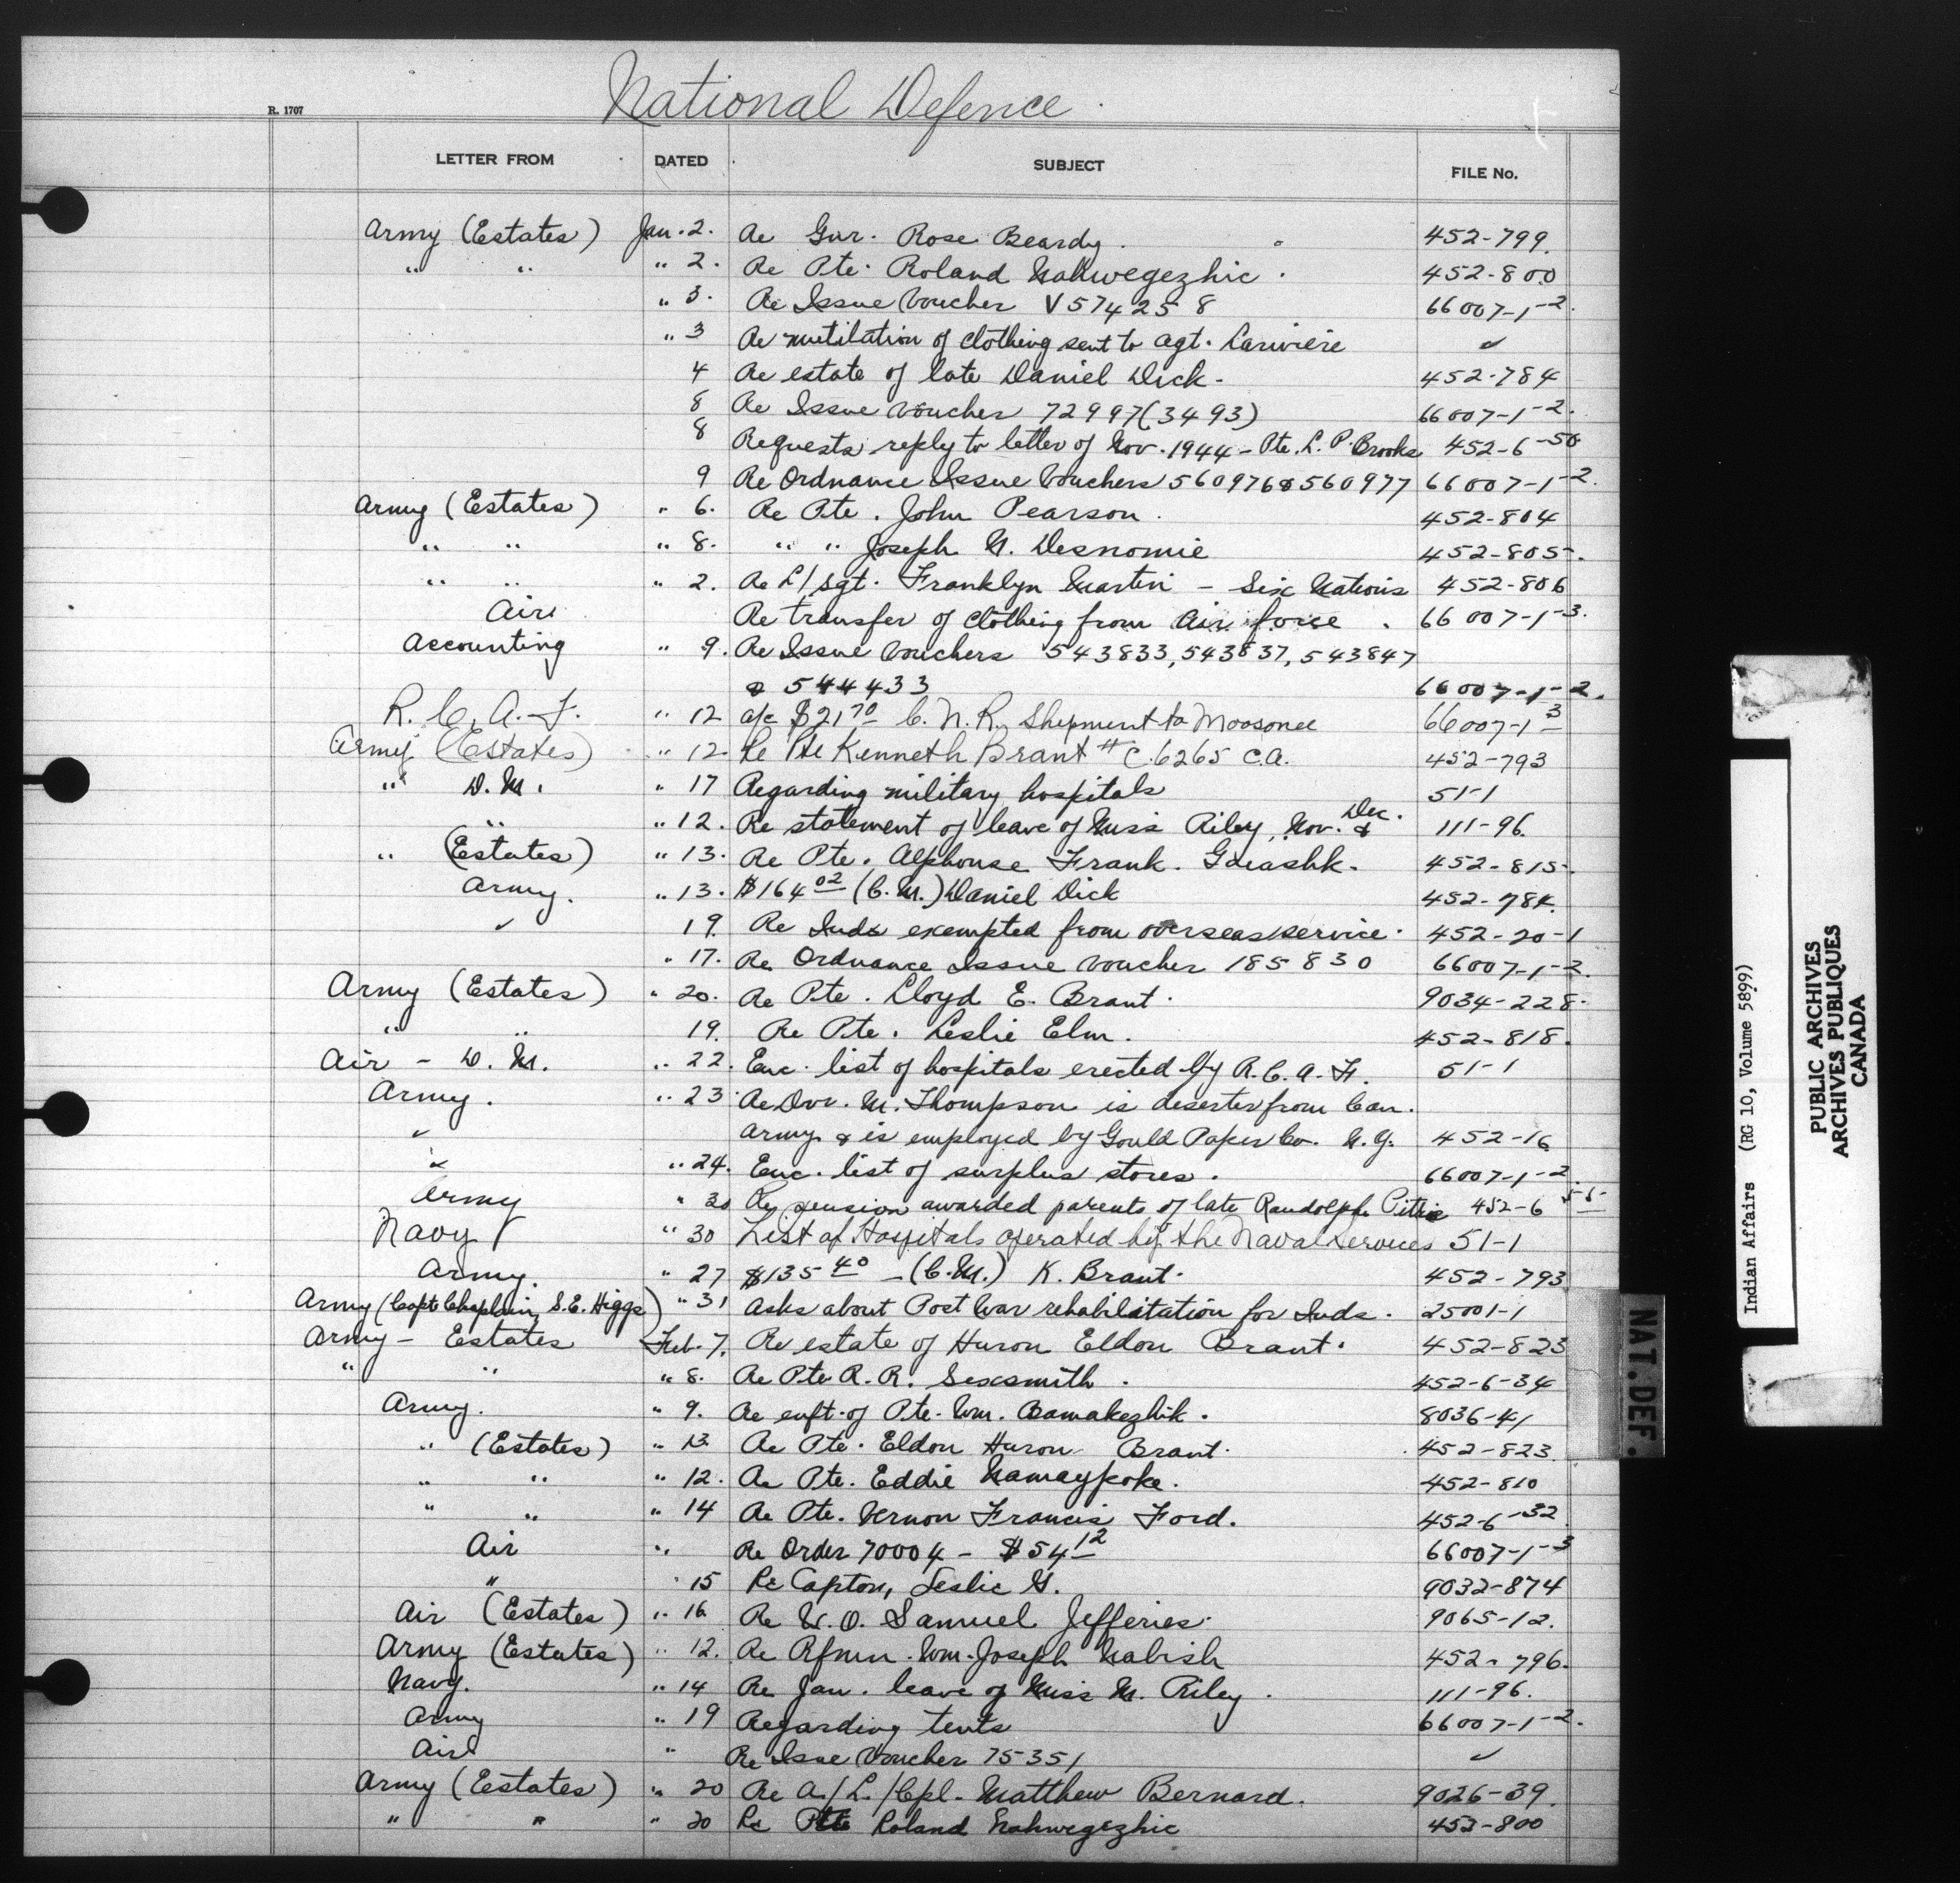 National Defence
R. 1707
LETTER FROM DATED SUBJECT FILE No.
Army (Estates) Jan. 2. Re Gnr. Rose Beardy. 452-799.
" " " 2. Re Pte. Roland Nahwegezhic. 452-800
" 3. Re Issue Voucher V574258 66007-1-2.
" 3 Re mutilation of clothing sent to Agt. Lariviere ✓
4 Re estate of late Daniel Dick. 452-784
8 Re Issue Voucher 72997(3493) 66007-1-2.
8 Requests reply to letter of Nov. 1944 - Pte. L. P. Brooks 452-6-50
9 Re Ordnance Issue Vouchers 560976 & 560977 66007-1-2.
Army (Estates) " 6. Re Pte. John Pearson. 452-804
" " " 8. " " Joseph N. Desnomie 452-805.
" " " 2. Re L/Sgt. Franklyn Martin - Six Nations 452-806
Air Re transfer of clothing from Air force. 66007-1-3.
Accounting " 9. Re Issue Vouchers 543833, 543837, 543847
& 544433 66007-1-2.
R. C. A. F. " 12 a/c $21 70 C. N. R. Shipment to Moosonee 66007-1-3
Army (Estates) " 12 Re Pte Kenneth Brant # C.6265 C.A. 452-793
" D. M. " 17 Regarding military hospitals 51-1
" " 12. Re statement of leave of Miss Riley, Nov. & Dec. 111-96.
" (Estates) " 13. Re Pte. Alphonse Frank. 452-815.
Army. " 13. $164 02 (C. M.) Daniel Dick 452-784.
✓ 19. Re Inds exempted from overseas service. 452-20-1
" 17. Re Ordnance Issue Voucher 185830 66007-1-2.
Army (Estates) " 20. Re Pte. Lloyd E. Brant. 9034-228.
" " 19. Re Pte. Leslie Elm. 452-818.
Air - D. M. " 22. Enc. list of hospitals erected by R. C. A. F. 51-1
Army. " 23 Re Dvr. M. Thompson is deserter from Can.
✓ Army & is employed by Gould Paper Co. N. Y. 452-16
✓ " 24. Enc. list of surplus stores. 66007-1-2.
Army " 30 Re pension awarded parents of late Randolph 452-6
Navy " 30 List of Hospitals operated by the Naval Services 51-1
Army. " 27 $135 40 - (C. M.) K. Brant. 452-793
Army (Capt. Chaplain, S. E. Higgs) " 31 Asks about Post War rehabilitation for Inds. 25001-1
Army - Estates Feb. 7. Re estate of Huron Eldon Brant. 452-823
" " " 8. Re Pte R. R. Sexsmith. 452-6-34
Army. " 9. Re enft. of Pte. Wm. 8036-41
" (Estates) " 13 Re Pte. Eldon Huron Brant. 452-823.
" " " 12. Re Pte. Eddie Namaypoke. 452-810
" " " 14 Re Pte. Vernon Francis Ford. 452-6-32.
Air " Re Order 70004 - $54 12 66007-1-3
" " 15 Re Capton, Leslie G. 9032-874
Air (Estates) " 16 Re W. O. Samuel Jefferies. 9065-12.
Army (Estates) " 12. Re Rfmn. Wm. Joseph Nabish 452-796.
Navy. " 14 Re Jan. leave of Miss M. Riley. 111-96.
Army " 19 Regarding tents 66007-1-2.
Air " Re Issue Voucher 75351 ✓
Army (Estates) " 20 Re A/L/Cpl. Matthew Bernard. 9026-39.
" " " 20 Re Pte Roland Nahwegezhic 452-800
NAT. DEF.
Indian Affairs (RG 10, Volume 5899)
PUBLIC ARCHIVES
ARCHIVES PUBLIQUES
CANADA